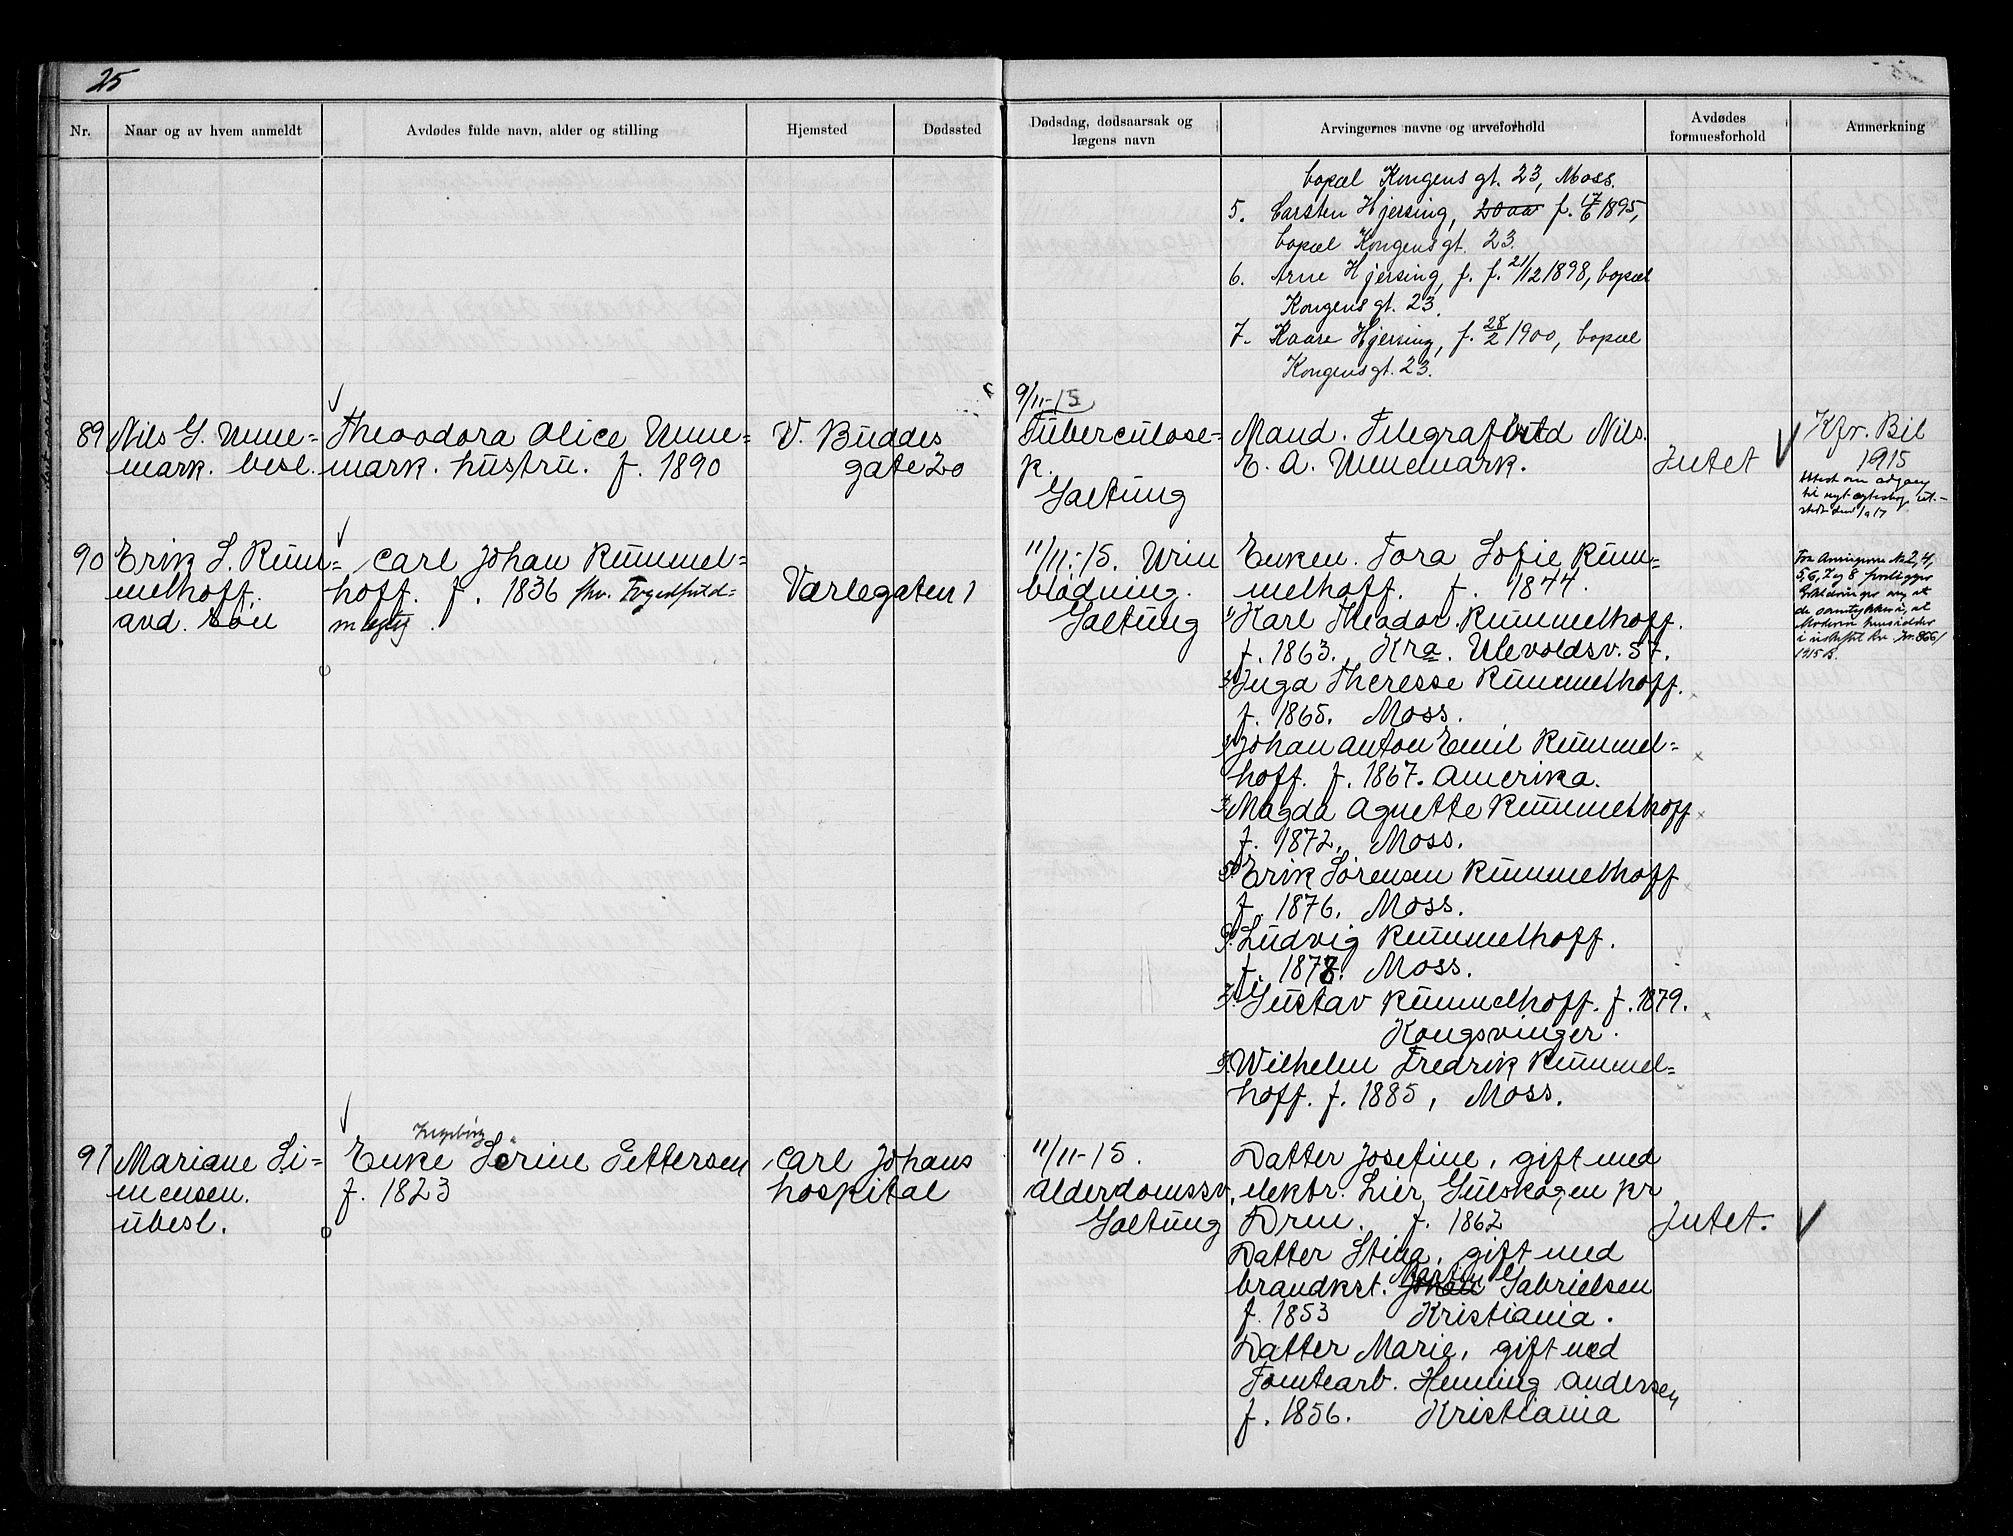 25
Nr.
Naar og av hvem anmeldt
Avdødes fulde navn, alder og stilling
Hjemsted
Dødssted
Dødsdag, dødsaarsak og
lægens navn
Arvingernes navne og arveforhold
Avdødes
formuesforhold
Anmerkning
bopæl Kongens gt. 23, Moss.
5. Carsten Hjersing, 20 aar f. 17/6 1895,
bopæl Kongens gt. 23.
6. Arne Hjersing, f. f. 21/12 1898, bopæl
Kongens gt. 23.
7. Kaare Hjersing, f. 28/2 1900, bopæl
Kongens gt. 23.
89
Nils G. Unne=
mark. besl.
Theodora Alice Unne=
mark. hustru. f. 1890
V. Buddes
gate 20
9/11-15
Tuberculose-
p.
Galtung
Mand. Telegrafbstd Nils.
E. A. Unnemark.
Intet
Kfr. Bil
1915
Attest om adgang
til nyt egteskap ut-
1917
90
Erik S. Rum=
melhoff.
avd. søn
Carl Johan Rummel=
hoff. f. 1836 fhv. Fogedfuld=
mægtig.
Værlegaten 1
11/11.-15. Urin
blødning.
Galtung
Enken. Tora Sofie Rum=
melhoff. f. 1844.
1. Karl Theador. Rummelhoff.
f. 1863. Kra. Ulevoldsv. 57.
2. Inga Theresse Rummelhoff.
f. 1865. Moss.
3. Johan Anton Emil Rummel=
hoff. f. 1867. Amerika.
4. Magda Agnette Rummelhoff
f. 1872. Moss.
5. Erik Sørensen Rummelhoff
f. 1876. Moss.
6. Ludvig Rummelhoff.
f. 1878. Moss.
7. Gustav Rummelhoff. f. 1879.
Kongsvinger.
8. Wilhelm Fredrik Rummel=
hoff. f. 1885, Moss.
Fra Arvingerne No 2, 4,
5, 6, 7 og 8 foreligger
Erklæringer om at
de samtykker i, at
Moderen hensidder
i uskiftet Bo. Jr. 866/
1915 B.
91
Mariane Si=
mensen.
ubesl.
Ingeborg
Enke Serine Pettersen
f. 1823
Carl Johans
hospital
11/11-15.
Alderdomssv.
Galtung
Datter Josefine, gift med
elektr. Lier, Gulskogen pr
Drm. f. 1862
Datter Stina, gift med
Martin
brandkst. Johan Gabrielsen
f. 1853 Kristiania.
Datter Marie, gift med
Tomtearb. Henning Andersen
f. 1856. Kristiania
Intet.